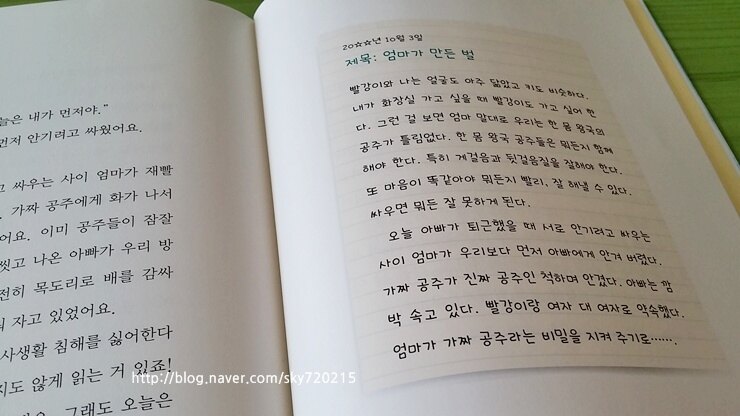 늘은 내가 먼저야.”
먼저 안기려고 싸웠어요.
고 싸우는 사이 엄마가 재빨
가짜 공주에게 화가 나서
어요. 이미 공주들이 잠잘
씻고 나온 아빠가 우리 방
전히 목도리로 배를 감싸
자고 있었어요.
사생활 침해를 싫어한다
지도 않게 읽는 거 있죠!
그래도 오늘은
20☆☆년 10월 3일
제목: 엄마가 만든 벌
빨강이와 나는 얼굴도 아주 닮았고 키도 비슷하다.
내가 화장실 가고 싶을 때 빨강이도 가고 싶어 한
다. 그런 걸 보면 엄마 말대로 우리는 한 몸 왕국의
공주가 틀림없다. 한 몸 왕국 공주들은 뭐든지 함께
해야 한다. 특히 게걸음과 뒷걸음질을 잘해야 한다.
또 마음이 똑같아야 뭐든지 빨리, 잘 해낼 수 있다.
싸우면 뭐든 잘 못하게 된다.
오늘 아빠가 퇴근했을 때 서로 안기려고 싸우는
사이 엄마가 우리보다 먼저 아빠에게 안겨 버렸다.
가짜 공주가 진짜 공주인 척하며 안겼다. 아빠는 깜
박 속고 있다. 빨강이랑 여자 대 여자로 약속했다.
엄마가 가짜 공주라는 비밀을 지켜 주기로…….
http://blog.naver.com/sky720215